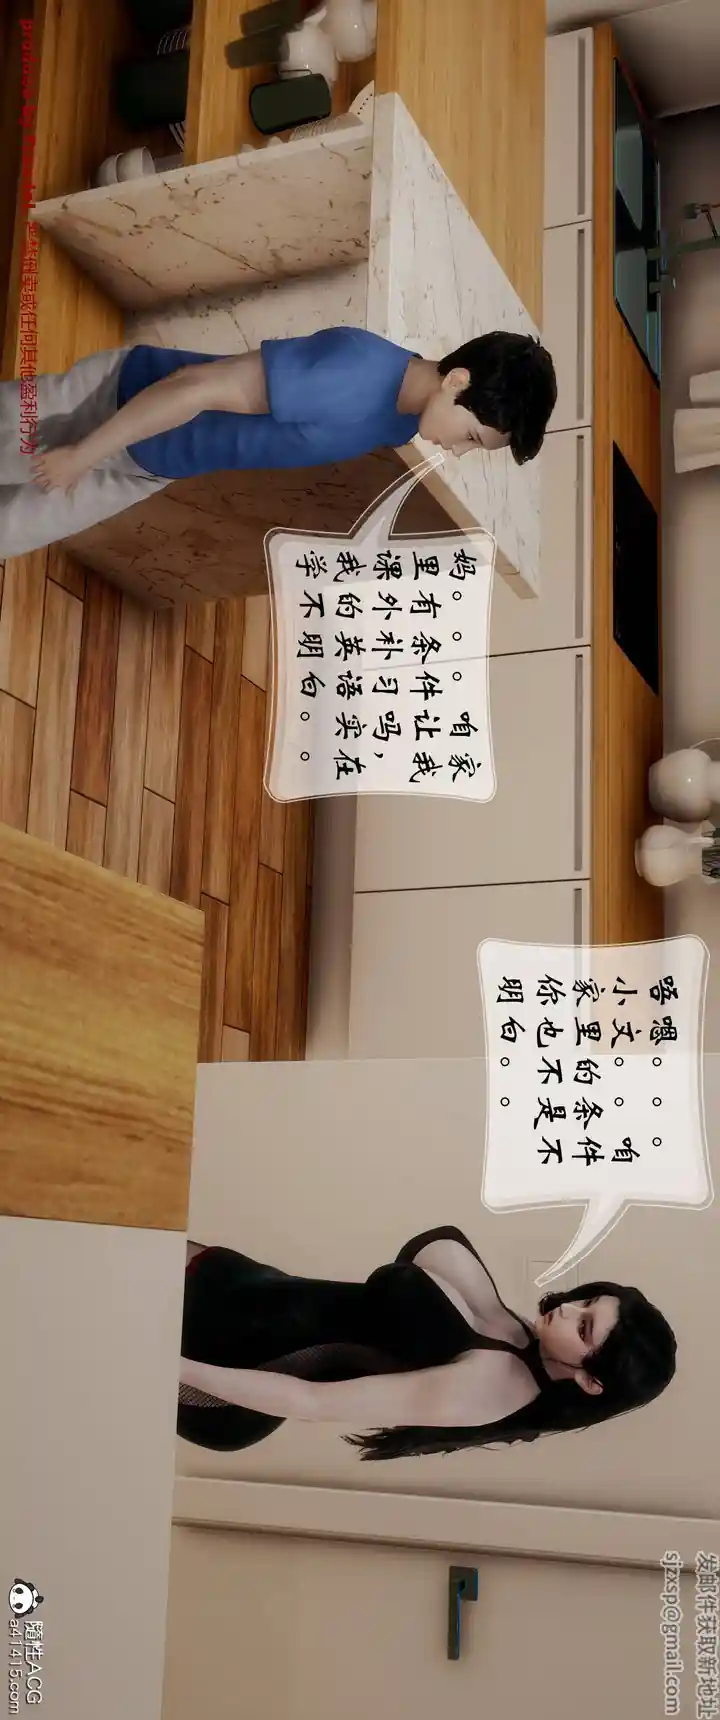 发邮件获取新地址
sjzxsp@gmail.com
妈。。。咱家
里有条件让我
课外补习吗，
我的英语实在
学不明白。。
唔嗯。。。
小文。。咱
家里的条件
你也不是不
明白。。
严禁倒卖或任何其他盈利行为
随性ACG
a41415.com